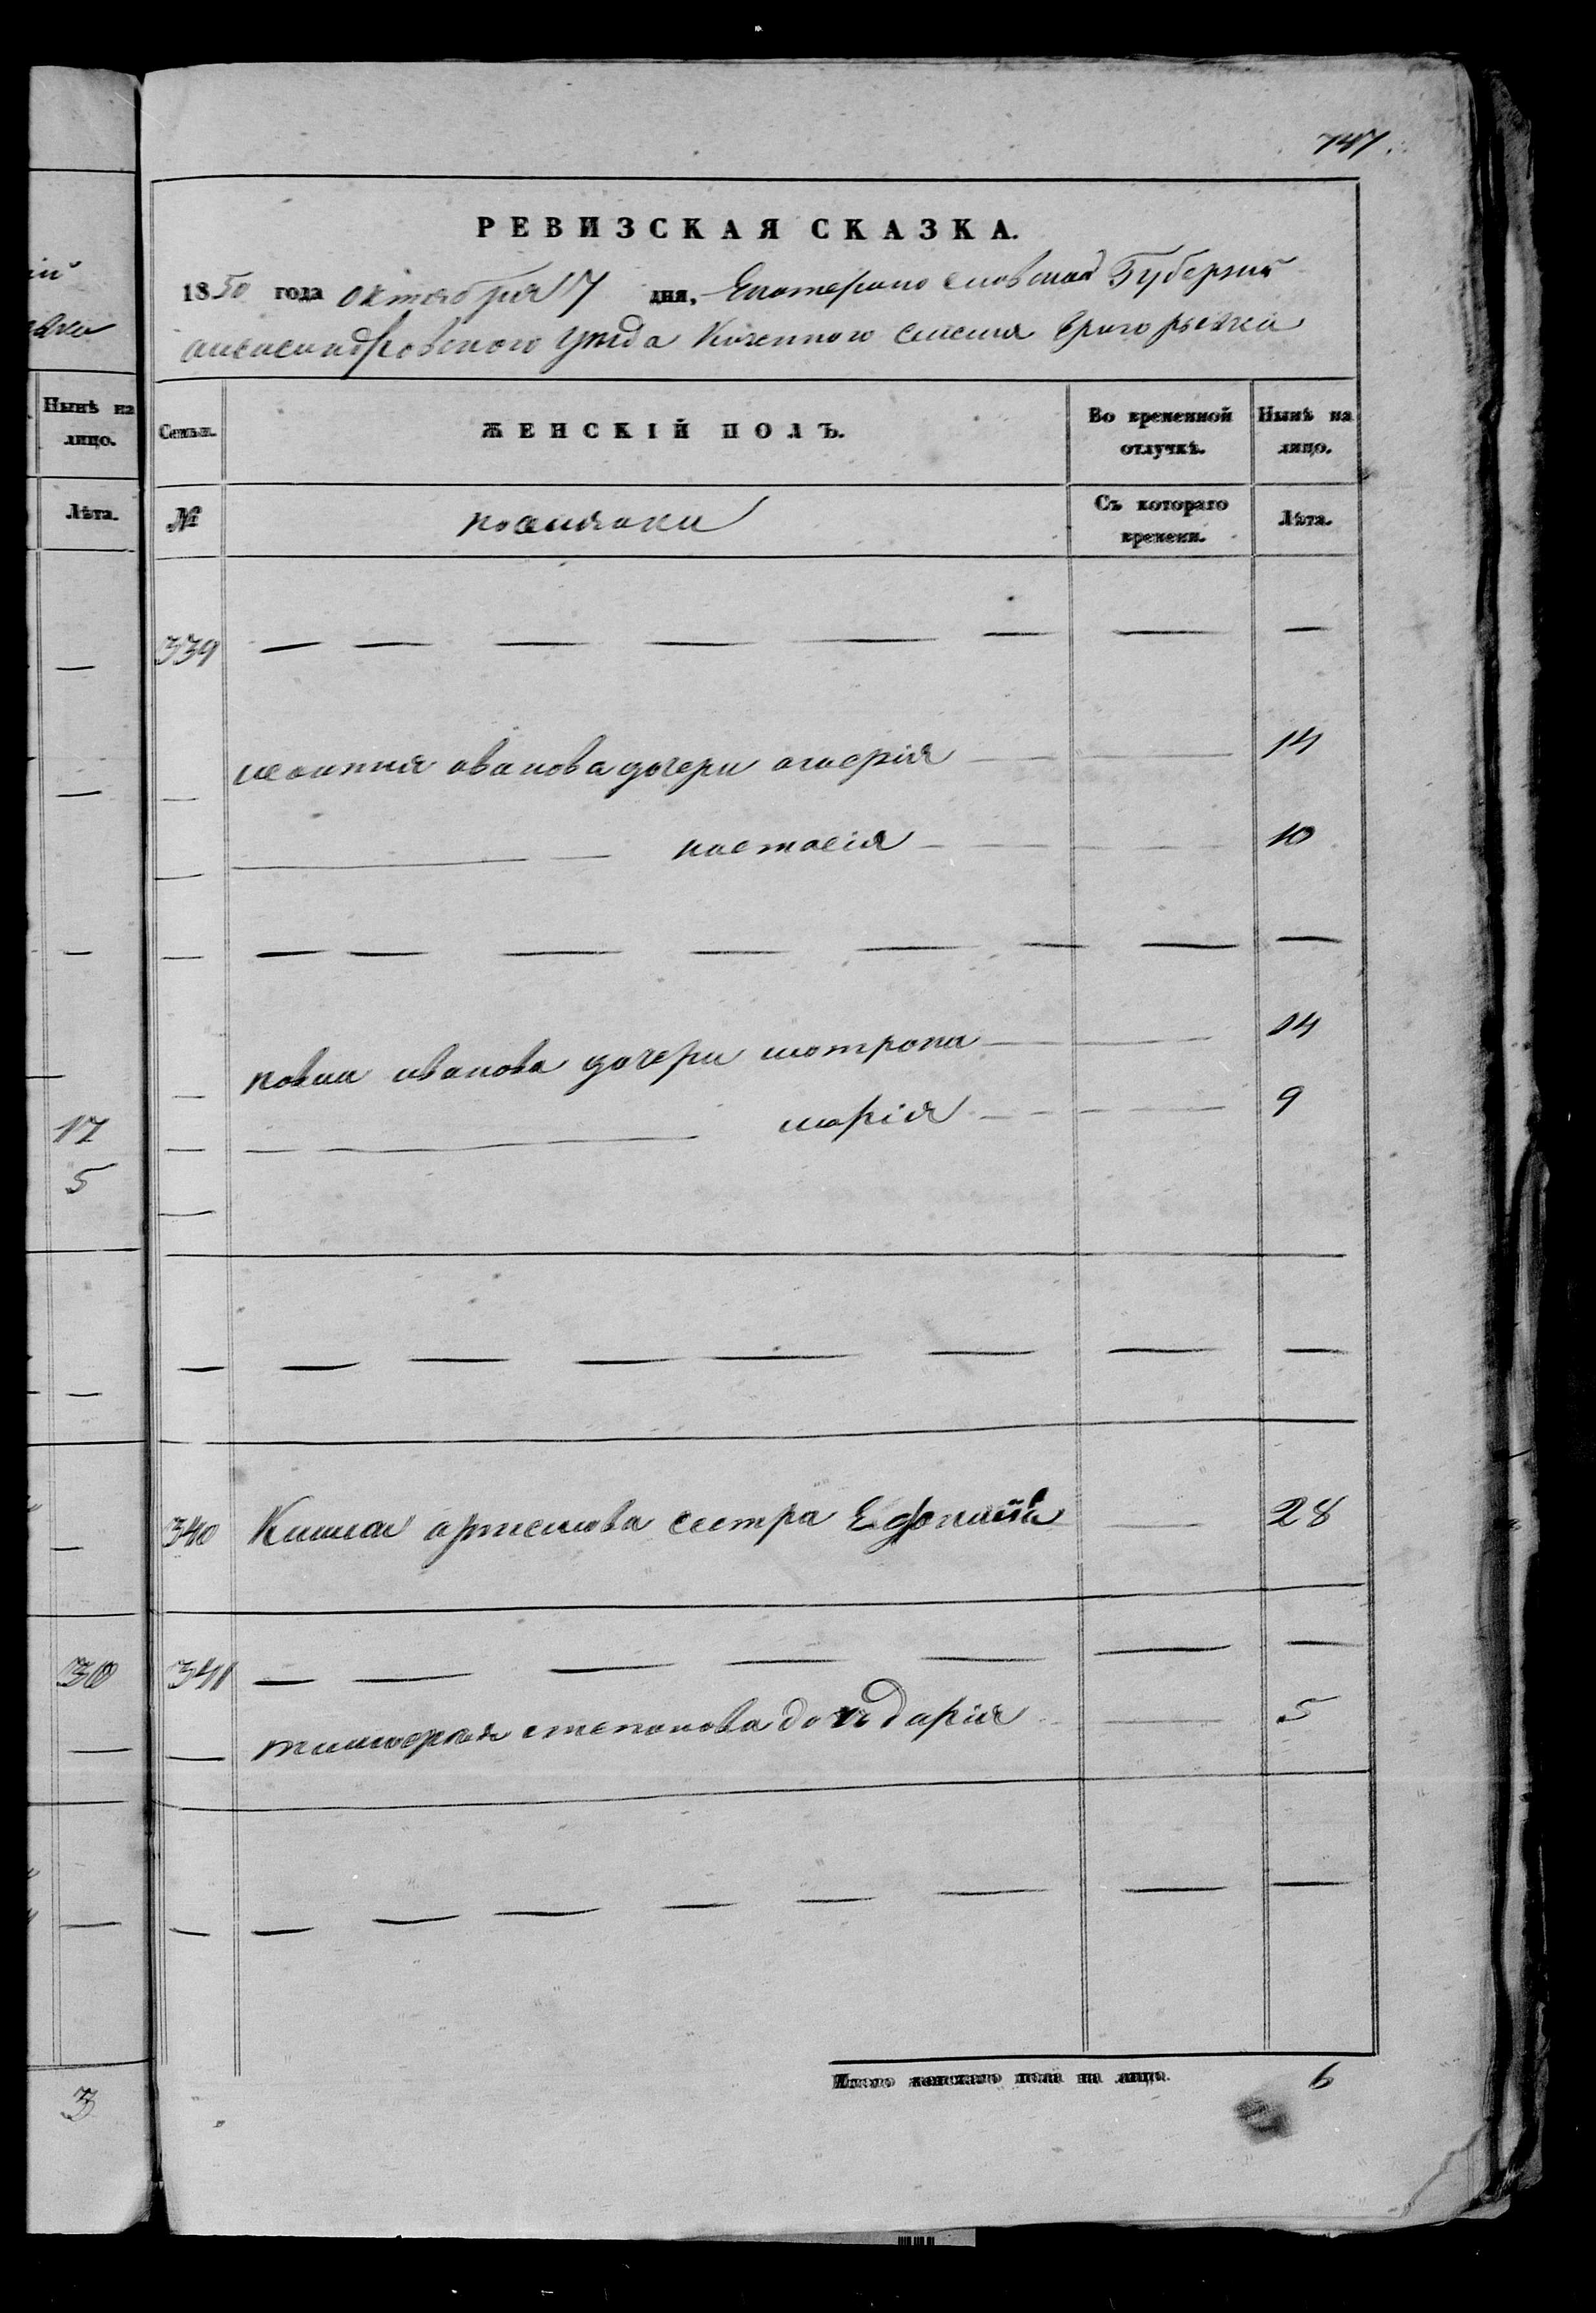 747.
РЕВИЗСКАЯ СКАЗКА.
1850 года октября 17 дня, Екатеринославской Губерніи
александровского уезда Казенного Селения Григорьевки
Семьи. ЖЕНСКІЙ ПОЛЪ. Во временной отлучкѣ. Нынѣ на лицо.
№ Съ котораго времени. Лѣта.
339 — — — — — — — —
иванова дочери — 14
— настасія — 10
— — — — — — — — —
иванова дочери мотрона — 14
— марія — 9
—
— — — — — — — —
340 артемова сестра — 28
341 — — — — — — —
— степанова дочь дарія — 5
— — — — — — — — —
Итого женскаго пола на лицо. 6
Нынѣ на лицо.
Лѣта.
17
5
30
3